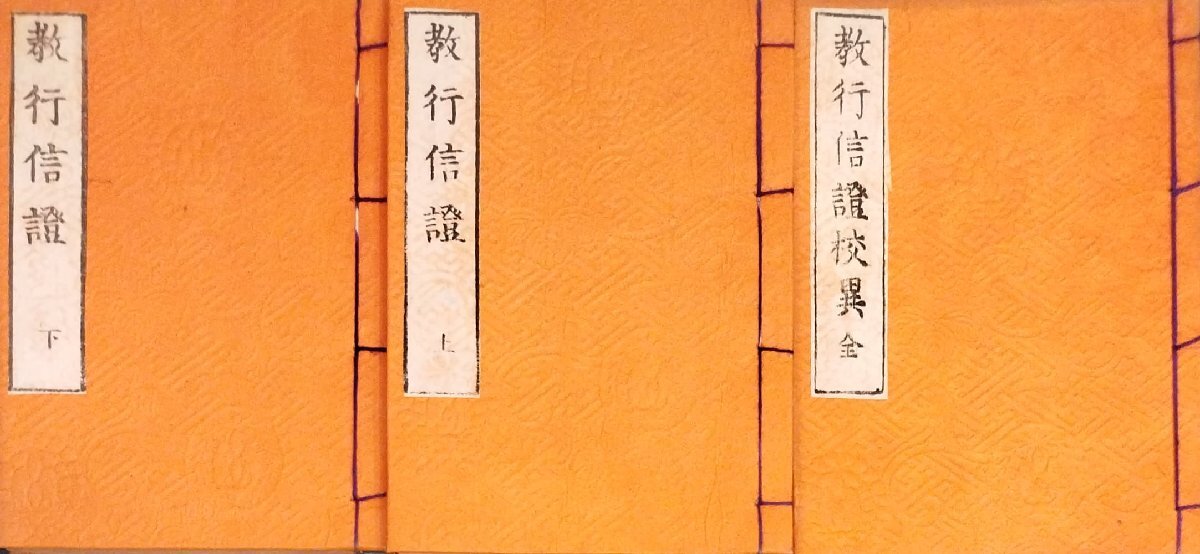 教行信證校異 全
教行信證 上
教行信證 下